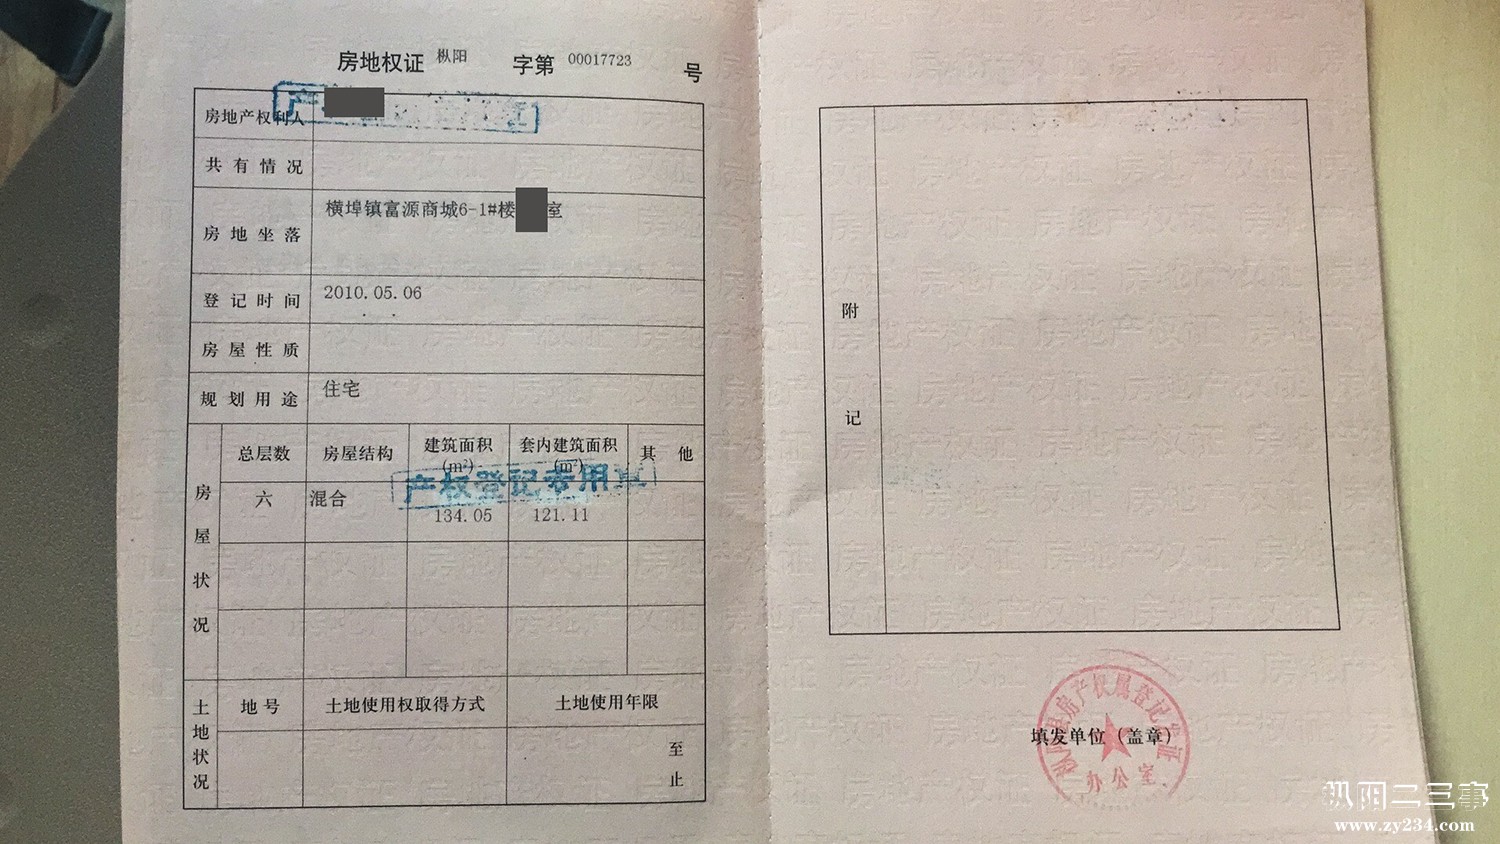 房地权证 枞阳 字第 00017723 号
房地产权利人
共有情况
房地坐落 横埠镇富源商城6-1#楼 室
登记时间 2010.05.06
房屋性质
规划用途 住宅
房屋状况
总层数 房屋结构 建筑面积(m²) 套内建筑面积(m²) 其他
产权登记专用章
六 混合 134.05 121.11
土地状况
地号 土地使用权取得方式 土地使用年限
至
止
附记
枞阳县房产权属登记发证
填发单位（盖章）
办公室
枞阳二三事
www.zy234.com